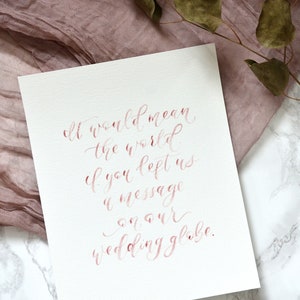 It would mean
the world
if you left us
a message
on our
wedding globe.